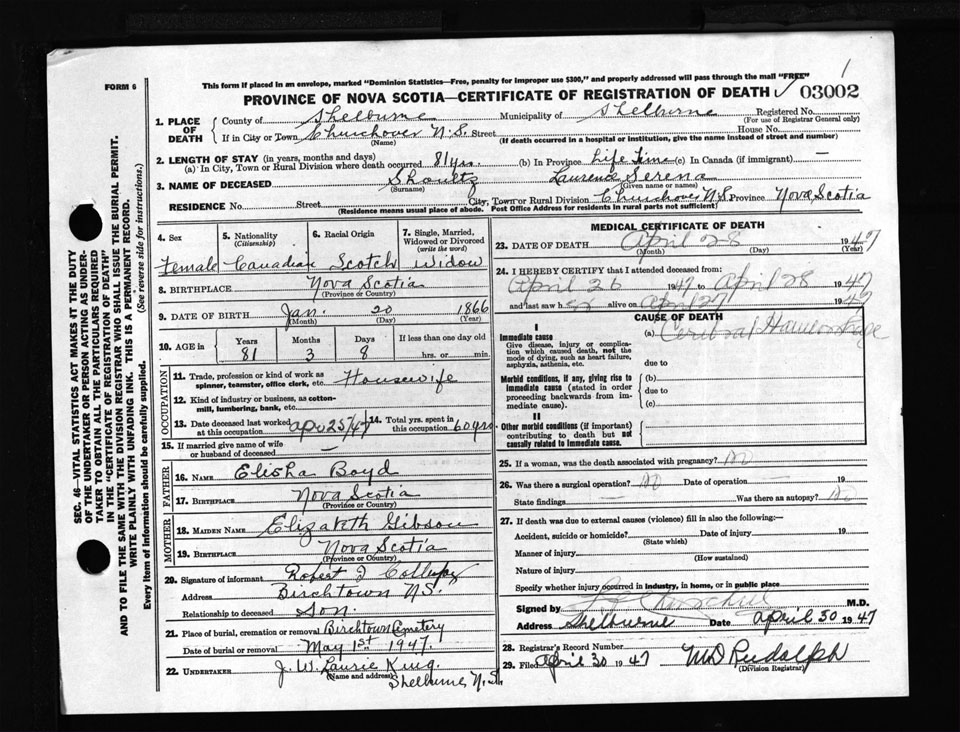 FORM 6
This form if placed in an envelope, marked "Dominion Statistics—Free, penalty for improper use $300," and properly addressed will pass through the mail "FREE"
1
PROVINCE OF NOVA SCOTIA—CERTIFICATE OF REGISTRATION OF DEATH 03002
SEC. 46—VITAL STATISTICS ACT MAKES IT THE DUTY
OF THE UNDERTAKER OR PERSON ACTING AS UNDER-
TAKER TO OBTAIN ALL THE PARTICULARS REQUIRED
IN THE "CERTIFICATE OF REGISTRATION OF DEATH"
AND TO FILE THE SAME WITH THE DIVISION REGISTRAR WHO SHALL ISSUE THE BURIAL PERMIT.
WRITE PLAINLY WITH UNFADING INK. THIS IS A PERMANENT RECORD.
Every item of information should be carefully supplied. (See reverse side for instructions.)
1. PLACE OF DEATH County of Shelburne Municipality of Shelburne Registered No.
(For use of Registrar General only)
If in City or Town Churchover N.S. Street House No.
(Name) (If death occurred in a hospital or institution, give the name instead of street and number)
2. LENGTH OF STAY (in years, months and days)
(a) In City, Town or Rural Division where death occurred 81 yrs. (b) In Province Life Time (c) In Canada (if immigrant) —
3. NAME OF DECEASED Shoultz Laurence Serena
(Surname) (Given name or names)
RESIDENCE No. Street City, Town or Rural Division Churchover N.S. Province Nova Scotia
(Residence means usual place of abode. Post Office Address for residents in rural parts not sufficient)
4. Sex 5. Nationality (Citizenship) 6. Racial Origin 7. Single, Married, Widowed or Divorced (write the word)
Female Canadian Scotch Widow
8. BIRTHPLACE Nova Scotia
(Province or Country)
9. DATE OF BIRTH Jan. 20 1866
(Month) (Day) (Year)
10. AGE in Years Months Days If less than one day old
81 3 8 hrs. or min.
OCCUPATION
11. Trade, profession or kind of work as spinner, teamster, office clerk, etc. Housewife
12. Kind of industry or business, as cotton-mill, lumbering, bank, etc.
13. Date deceased last worked at this occupation Apr 25/47 14. Total yrs. spent in this occupation 60 yrs.
15. If married give name of wife or husband of deceased —
FATHER
16. NAME Elisha Boyd
17. BIRTHPLACE Nova Scotia
(Province or Country)
MOTHER
18. MAIDEN NAME Elizabeth Gibson
19. BIRTHPLACE Nova Scotia
(Province or Country)
20. Signature of informant Robert J
Address Birchtown N.S.
Relationship to deceased Son.
21. Place of burial, cremation or removal Birchtown Cemetery
Date of burial or removal May 1st 1947.
22. UNDERTAKER J. W. Laurie King.
(Name and address) Shelburne N.S.
MEDICAL CERTIFICATE OF DEATH
23. DATE OF DEATH April 28 1947
(Month) (Day) (Year)
24. I HEREBY CERTIFY that I attended deceased from:
April 26 1947 to April 28 1947
and last saw h alive on April 27 1947
CAUSE OF DEATH
I
Immediate cause (a)
Give disease, injury or complication which caused death, not the mode of dying, such as heart failure, asphyxia, asthenia, etc.
due to
Morbid conditions, if any, giving rise to immediate cause (stated in order proceeding backwards from immediate cause). (b)
due to
(c)
II
Other morbid conditions (if important) contributing to death but not causally related to immediate cause.
25. If a woman, was the death associated with pregnancy? No
26. Was there a surgical operation? No Date of operation 19
State findings — Was there an autopsy? No
27. If death was due to external causes (violence) fill in also the following:—
Accident, suicide or homicide? Date of injury 19
(State which)
Manner of injury
(How sustained)
Nature of injury
Specify whether injury occurred in industry, in home, or in public place
Signed by Churchill M.D.
Address Shelburne Date April 30 1947
28. Registrar's Record Number
29. Filed April 30 1947 MD Rudolph
(Division Registrar)